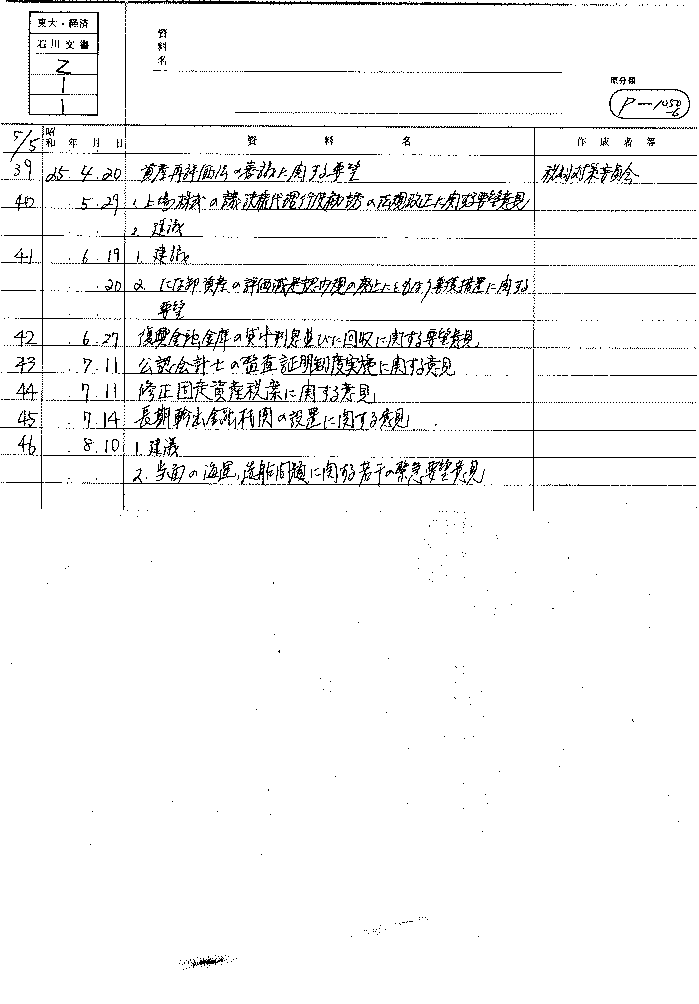 東大・経済
石川文書
Z
1
1
資料名
原分類
P-1050-6
5/5 昭和 年 月 日 資 料 名 作 成 者 等
39 25. 4. 20 資産再評価法の審議に関する要望 税制対策委員会
40 5. 29 1. 上場株式の議決権代理行使勧誘の法規改正に関する要望意見
2. 建議
41 6. 19 1. 建議
20 2. たな卸資産の評価減 に関する
要望
42 6. 27 復興金融金庫の貸付利息並びに回収に関する要望意見
43 7. 11 公認会計士の監査証明制度実施に関する意見
44 7. 11 修正固定資産税案に関する意見
45 7. 14 長期輸出金融機関の設置に関する意見
46 8. 10 1. 建議
2. 当面の海運、造船問題に関する若干の緊急要望意見